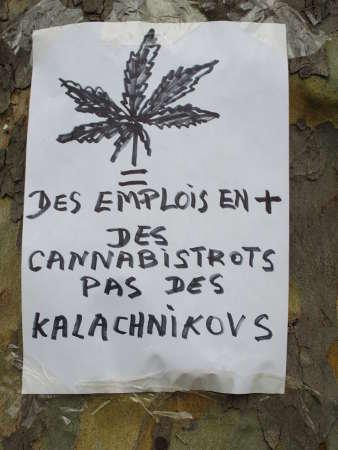 =
DES EMPLOIS EN +
DES
CANNABISTROTS
PAS DES
KALACHNIKOVS